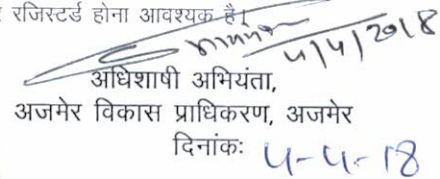 रजिस्टर्ड होना आवश्यक है।
4/4/2018
अधिशाषी अभियंता,
अजमेर विकास प्राधिकरण, अजमेर
दिनांकः 4-4-18